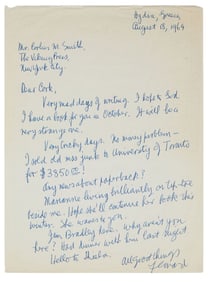 Hydra, Greece
August 13, 1964
Mr. Corlies M. Smith,
The Viking Press,
New York City.
Dear Cork,
Very mad days of writing. I hope to God
I have a book for you in October. It will be a
very strange one.
Very lucky days. No money problem —
I sold old mss junk to University of Toronto
for $3850 !
Any news about paperback?
Marianne living brilliantly on tip-toe
beside me. Hope she'll continue her books this
winter. She wants to you.
Jim Bradley here. Why aren't you
here? Had dinner with him last night
Hello to Sheila.
all good things
Leonard